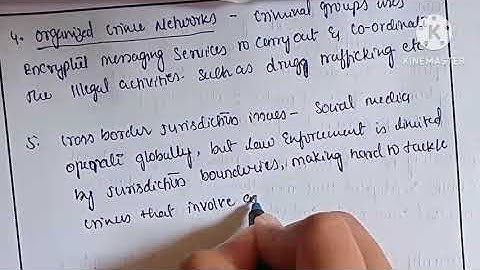 4. Organized Crime Networks - Criminal groups uses
Encrypted messaging services to carry out & co-ordinate
the Illegal activities. Such as drugg trafficking etc
5. Cross border Jurisdiction issues - Social media
operate globally, but law Enforcement is limited
by Jurisdiction boundaries, making hard to tackle
crimes that involve
KINEMASTER